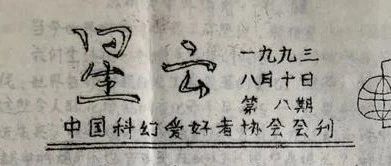 星云
一九九三
八月十日
第八期
中国科幻爱好者协会会刊